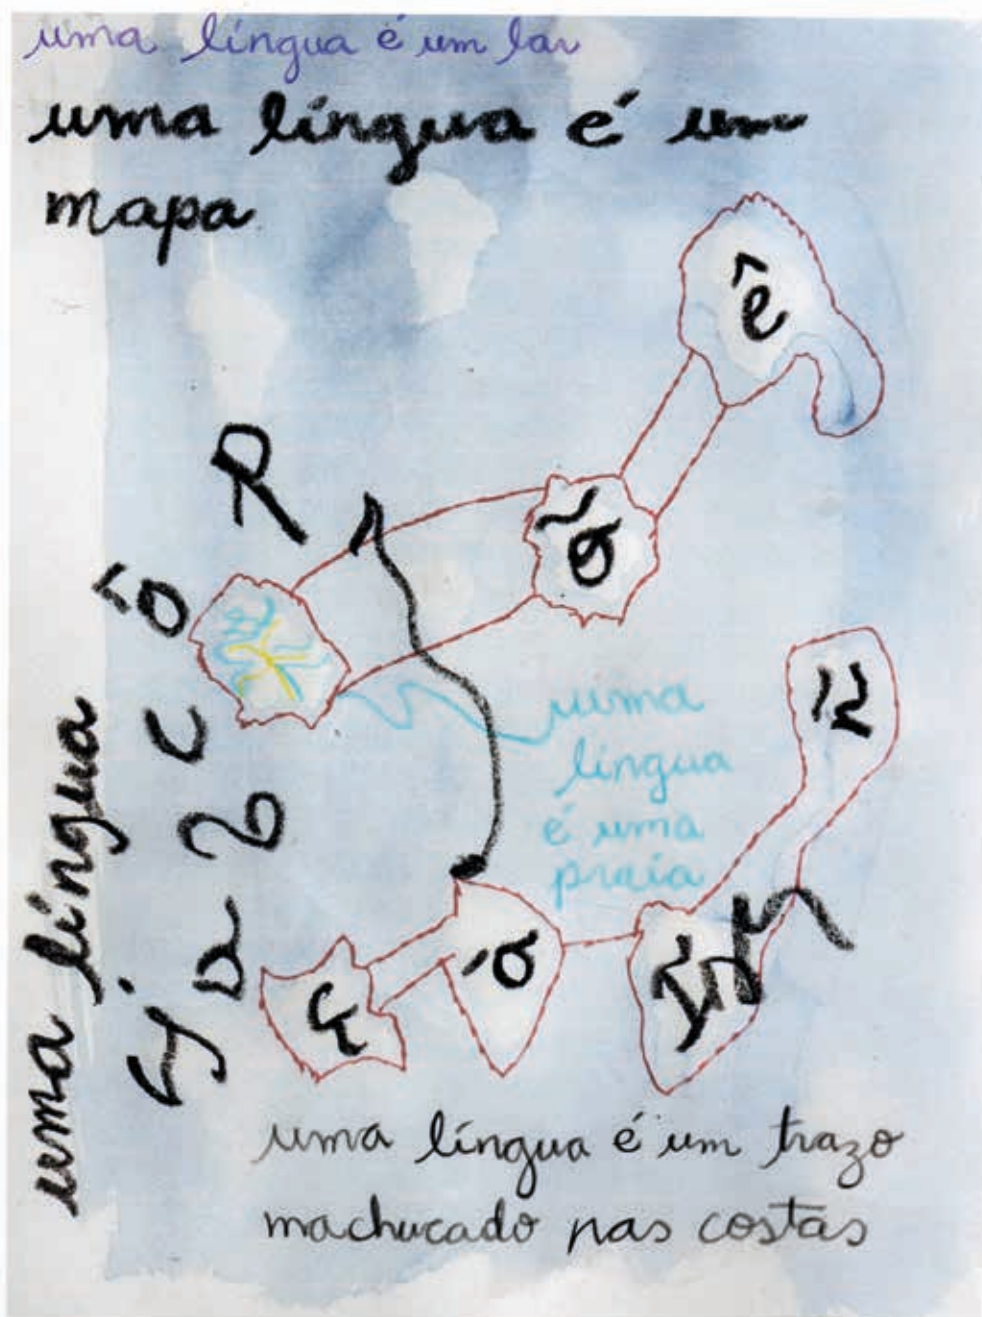 uma língua é um lar
uma língua é um
mapa
ê
õ
uma
língua
é uma
praia
ç
ó
uma língua
uma língua é um trazo
machucado nas costas